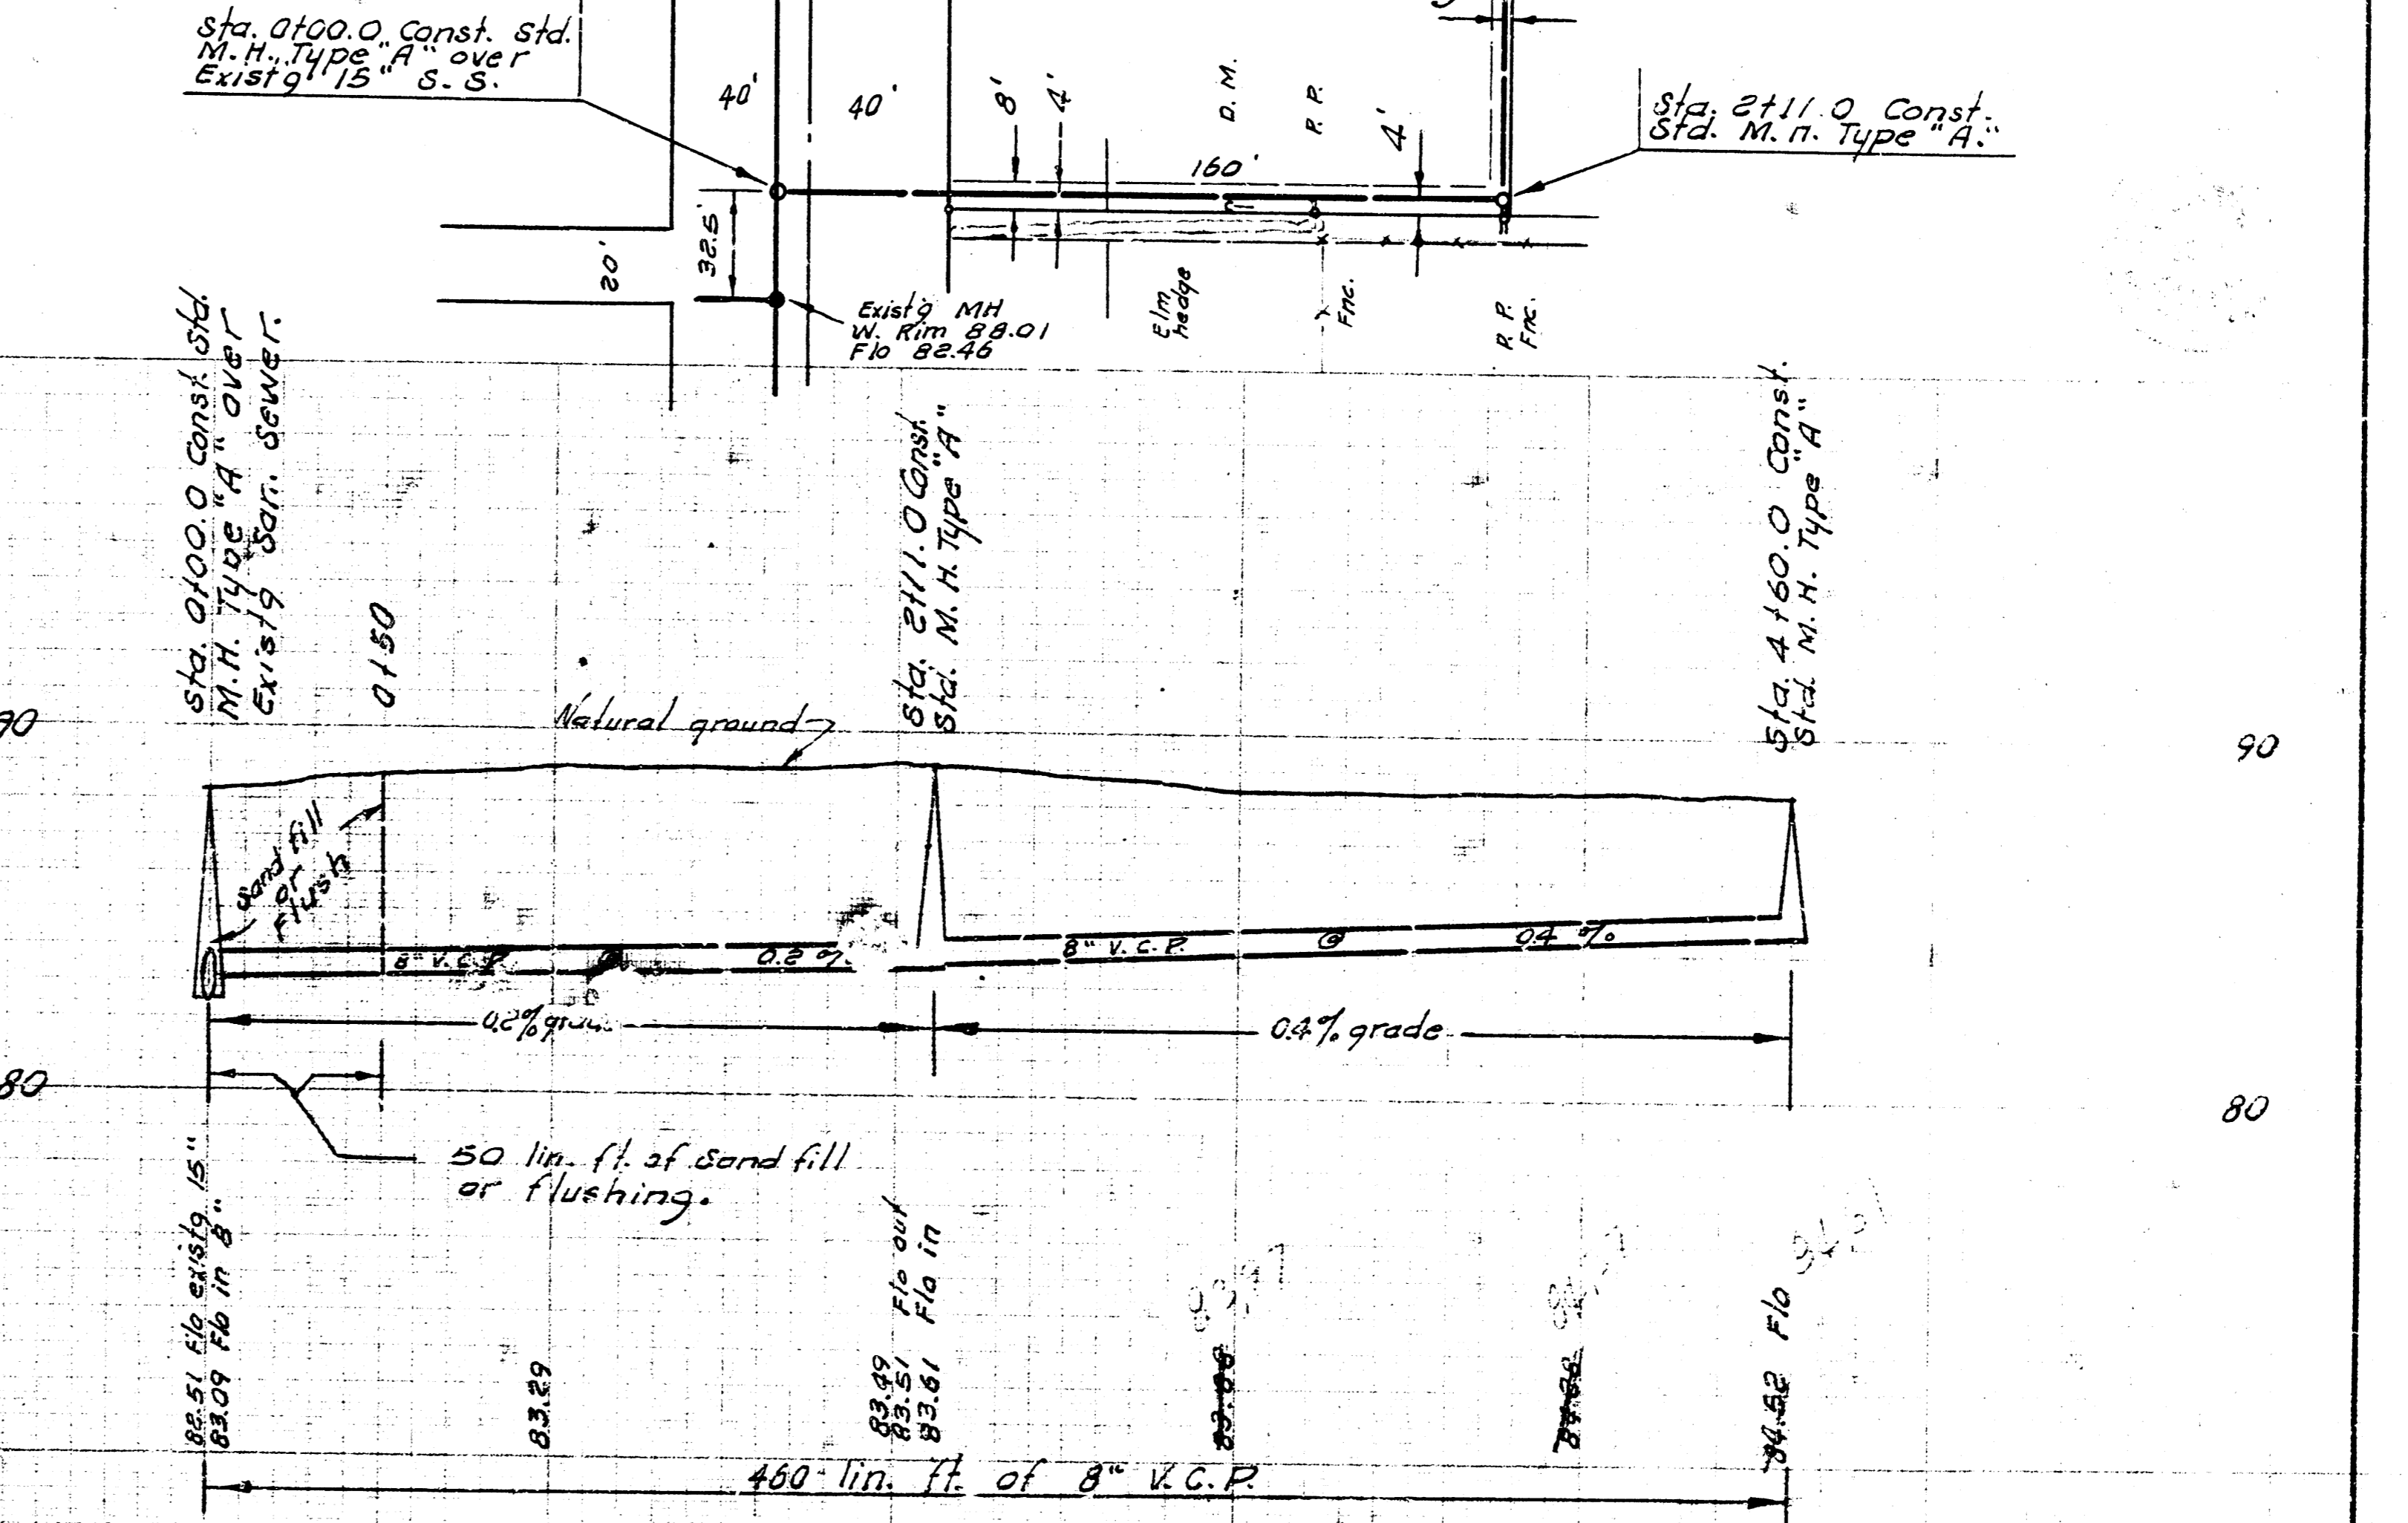 Sta. 0+00.0 Const. Std.
M.H. Type "A" over
Exist'g 15" S.S.
40'
40'
8'
4'
D.M.
P.P.
4'
160'
Sta. 2+11.0 Const.
Std. M.H. Type "A."
20'
32.5'
Exist'g MH
W. Rim 88.01
Flo 82.46
Elm
hedge
Fnc.
P.P.
Fnc.
Sta. 0+00.0 Const. Std.
M.H. Type "A" over
Exist'g San. Sewer.
0+50
Sta. 2+11.0 Const.
Std. M.H. Type "A"
Sta. 4+60.0 Const.
Std. M.H. Type "A"
90
Natural ground
90
Sand fill
or
Flush
8" V.C.P.
@
0.2 %
8" V.C.P.
@
0.4 %
0.2% grade
0.4% grade
80
80
50 lin. ft. of Sand fill
or flushing.
82.51 Flo exist'g 15"
83.09 Flo in 8"
83.29
83.49
83.51 Flo out
83.61 Flo in
83.97
84.52 Flo
460 lin. ft. of 8" V.C.P.